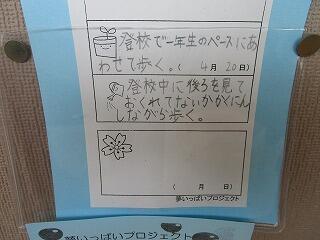 登校で一年生のペースにあ
わせて歩く。(4月20日)
登校中に後ろを見て
おくれてないかかくにん
しながら歩く。
(　月　日)
夢いっぱいプロジェクト
夢いっぱいプロジェクト